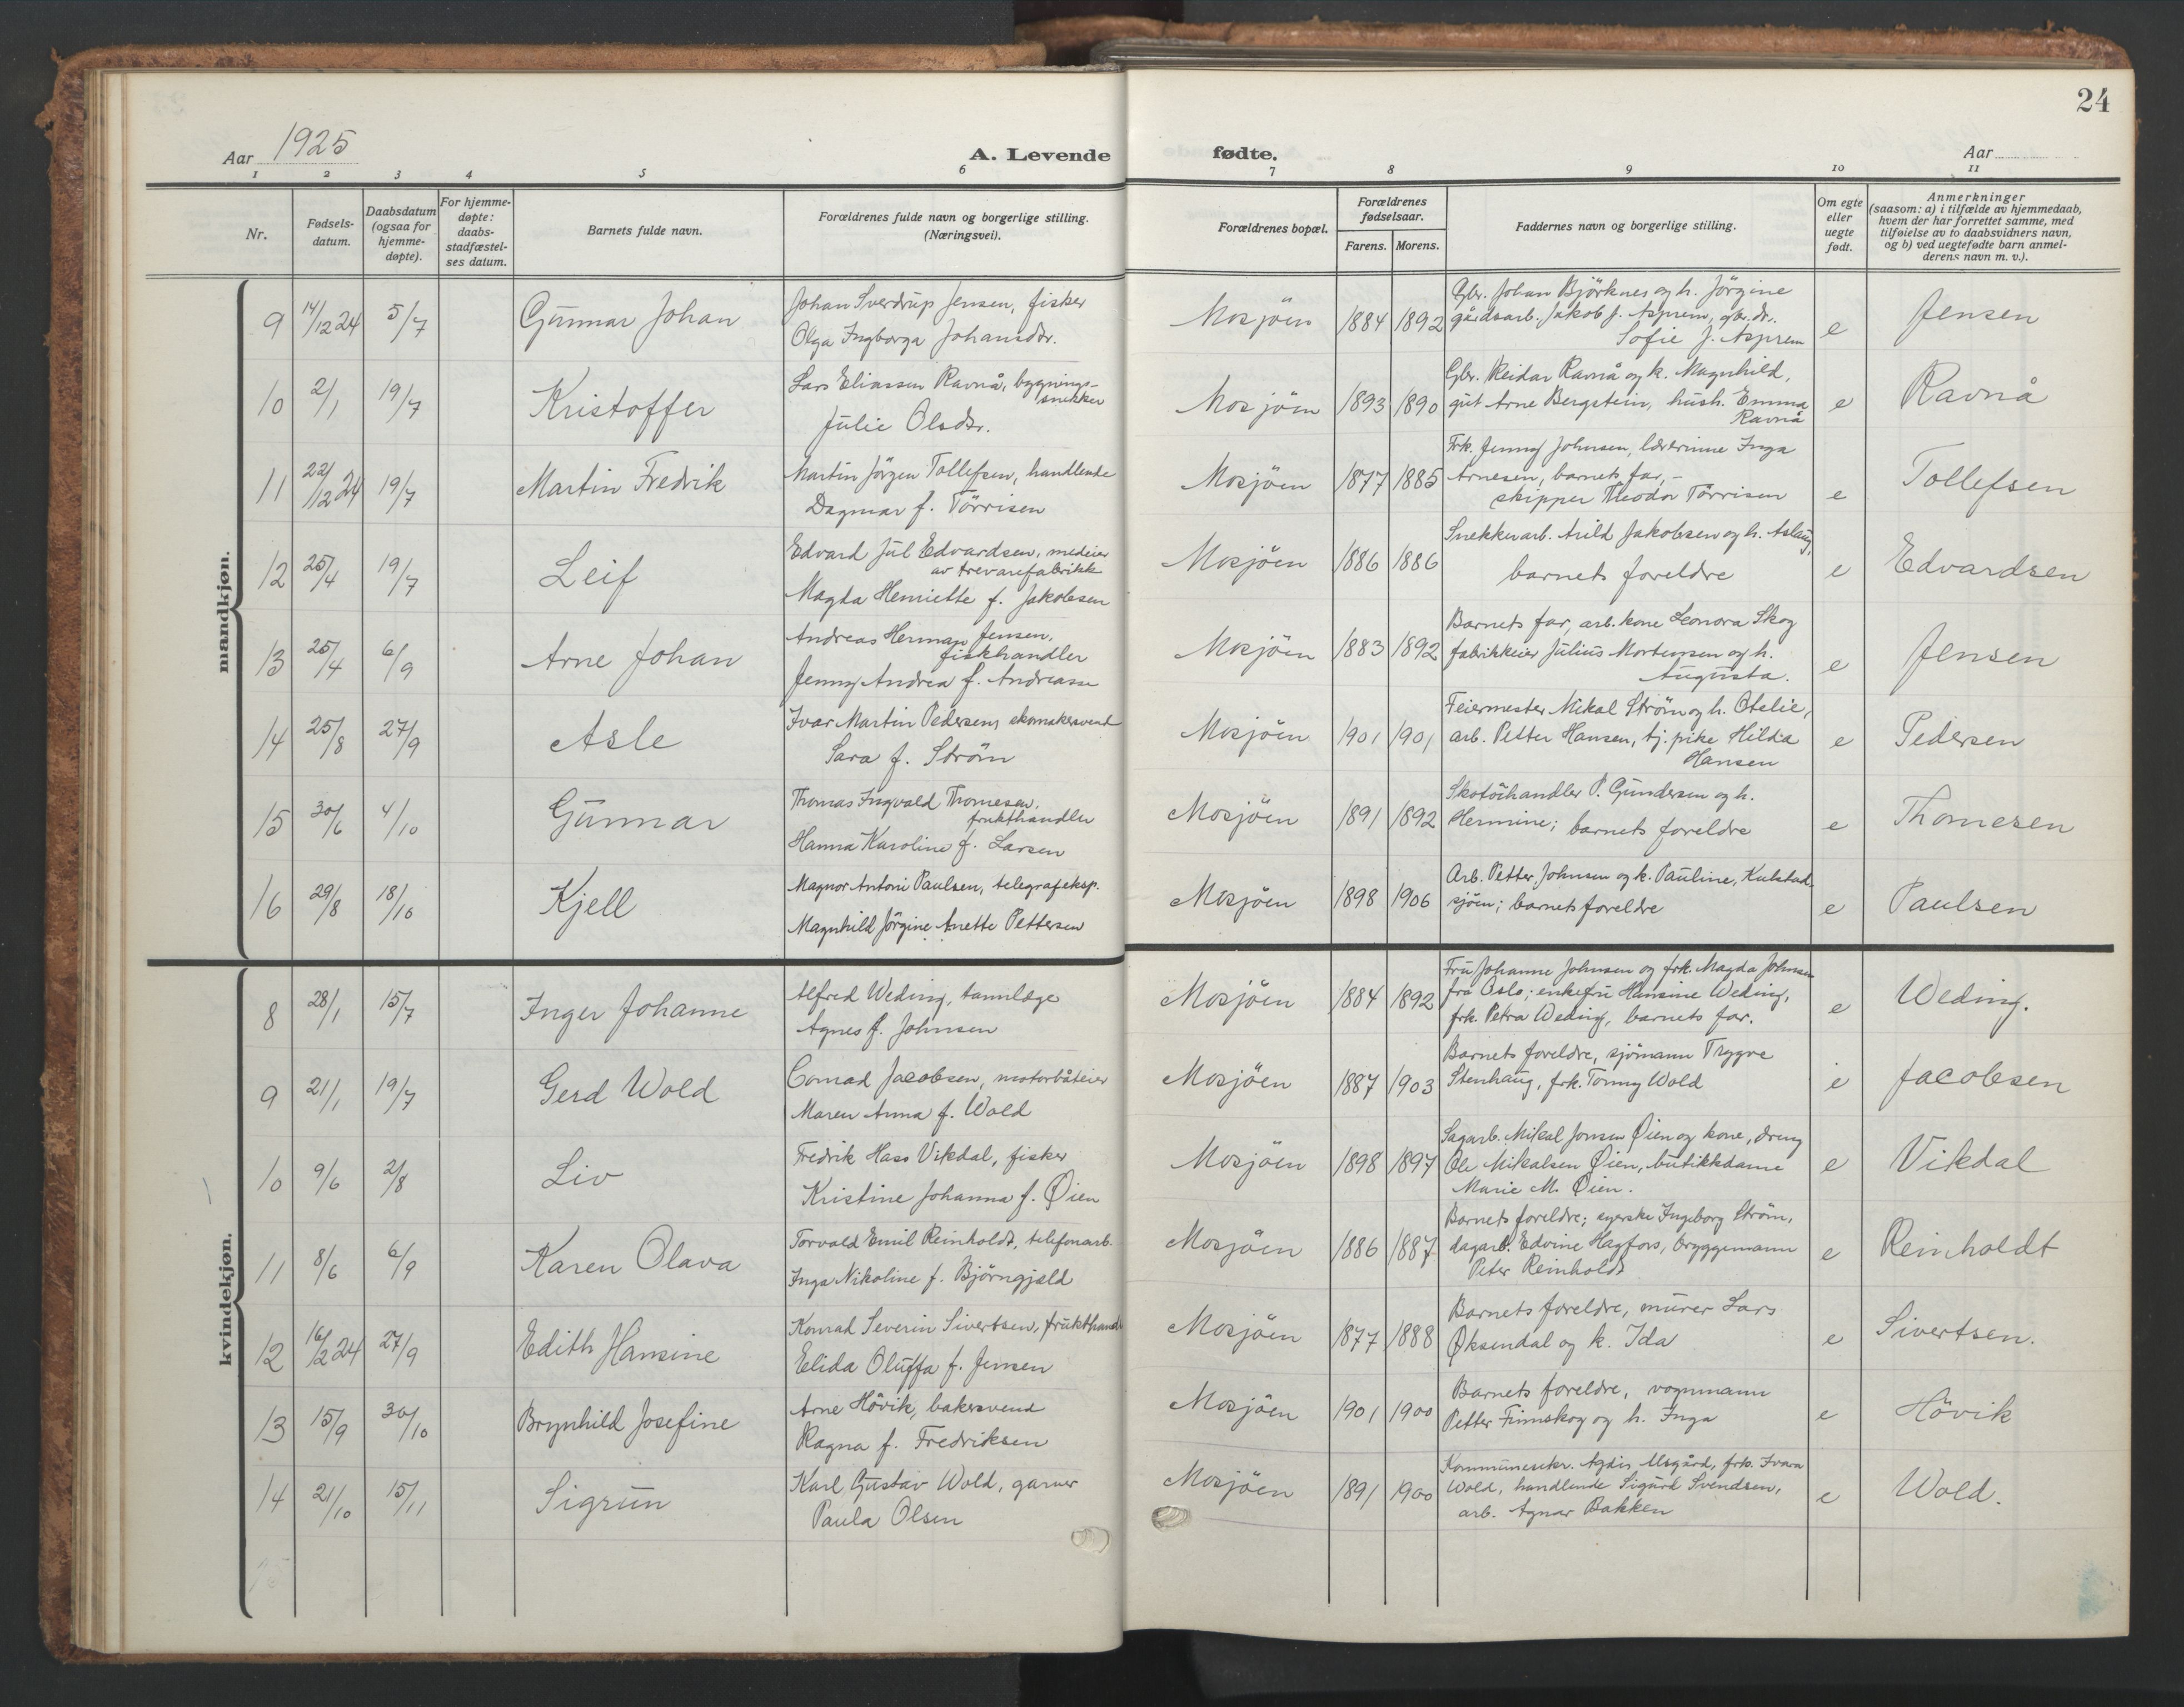 24
Aar 1925
A. Levende fødte.
Aar
1 2 3 4 5 6 7 8 9 10 11
Nr.
Fødsels-
datum.
Daabsdatum
(ogsaa for
hjemme-
døpte).
For hjemme-
døpte:
daabs-
stadfæstel-
ses datum.
Barnets fulde navn.
Forældrenes fulde navn og borgerlige stilling.
(Næringsvei).
Forældrenes bopæl.
Forældrenes
fødselsaar.
Farens. Morens.
Faddernes navn og borgerlige stilling.
Om egte
eller
uegte
født.
Anmerkninger
(saasom: a) i tilfælde av hjemmedaab,
hvem der har forrettet samme, med
tilføielse av to daabsvidners navn,
og b) ved uegtefødte barn anmel-
derens navn m. v.).
mandkjøn.
9 14/12 24 5/7 Gunnar Johan
Johan Sverdrup Jensen, fisker
Olga Ingborga Johansdtr.
Mosjöen 1884 1892
Gbr. Johan Björknes og h. Jörgine
gårdsarb. Jakob J. Asprem, gbr.dr.
Sofie J. Asprem
e Jensen
10 2/1 19/7 Kristoffer
Lars Eliassen Ravnå, bygnings-
snekker
Julie Olsdtr.
Mosjöen 1893 1890
Gbr. Reidar Ravnå og k. Magnhild,
gut Arne Bergstein, hush. Emma
Ravnå
e Ravnå
11 22/12 24 19/7 Martin Fredrik
Martin Jörgen Tollefsen, handlende
Dagmar f. Törrisen
Mosjöen 1877 1885
Frk. Jenny Johnsen, lærerinne Inga
Arnesen, barnets far,-
skipper Theodor Törrisen
e Tollefsen
12 25/4 19/7 Leif
Edvard Jul Edvardsen, medeier
av trevarefabrikk
Magda Henriette f. Jakobsen
Mosjöen 1886 1886
Snekkerarb. Arild Jakobsen og h. Aslaug,
barnets foreldre
e Edvardsen
13 25/4 6/9 Arne Johan
Andreas Herman Jensen,
fiskhandler
Jenny Andrea f. Andreassen
Mosjöen 1883 1892
Barnets far, arb. kone Leonora Skog
fabrikkeier Julius Mortensen og h.
Augusta.
e Jensen
14 25/8 27/9 Asle
Ivar Martin Pedersen, skomakersvend
Sara f. Ström
Mosjöen 1901 1901
Feiermester Mikal Ström og h. Otelie,
arb. Petter Hansen, tj. pike Hilda
Hansen
e Pedersen
15 30/6 4/10 Gunnar
Thomas Ingvald Thomesen,
frukthandler
Hanna Karoline f. Larsen
Mosjöen 1891 1892
Skotöihandler P. Gundersen og h.
Hermine; barnets foreldre
e Thomesen
16 29/8 18/10 Kjell
Magnor Antoni Paulsen, telegrafeksp.
Magnhild Jörgine Anette Pettersen
Mosjöen 1898 1906
Arb. Petter Johnsen og k. Pauline, Kulstad-
sjöen; barnets foreldre
e Paulsen
kvindekjøn.
8 28/1 15/7 Inger Johanne
Alfred Weding, tannlæge
Agnes f. Johnsen
Mosjöen 1884 1892
Fru Johanne Johnsen og frk. Magda Johnsen
fra Oslo; enkefru Hansine Weding,
frk. Petra Weding, barnets far.
e Weding.
9 21/1 19/7 Gerd Wold
Conrad Jacobsen, motorbåteier
Maren Anna f. Wold
Mosjöen 1887 1903
Barnets foreldre, sjömann Trygve
Stenhaug, frk. Tonny Wold
e Jacobsen
10 9/6 2/8 Liv
Fredrik Hass Vikdal, fisker
Kristine Johanna f. Øien
Mosjöen 1898 1897
Sagarb. Mikal Jonsen Øien og kone, dreng
Ole Mikalsen Øien, butikkdame
Marie M. Øien.
e Vikdal
11 8/6 6/9 Karen Olava
Torvald Emil Reinholdt, telefonarb.
Inga Nikoline f. Björngjeld
Mosjöen 1886 1887
Barnets foreldre; syerske Ingeborg Ström,
dagarb. Edvine Hagfors, bryggemann
Peter Reinholdt
e Reinholdt
12 16/2 24 27/9 Edith Hansine
Konrad Severin Sivertsen, frukthandl
Elida Oluffa f. Jensen
Mosjöen 1877 1888
Barnets foreldre, murer Lars
Øksendal og k. Ida
e Sivertsen.
13 15/9 30/10 Brynhild Josefine
Arne Hövik, bakersvend
Ragna f. Fredriksen
Mosjöen 1901 1900
Barnets foreldre, vognmann
Petter Finnskog og h. Inga
e Hövik
14 21/10 15/11 Sigrun
Karl Gustav Wold, garver
Paula Olsen
Mosjöen 1891 1900
Kommunesekr. Agdis Utsgård, frk. Ivara
Wold, handlende Sigurd Svendsen,
arb. Agnar Bakken
e Wold.
15